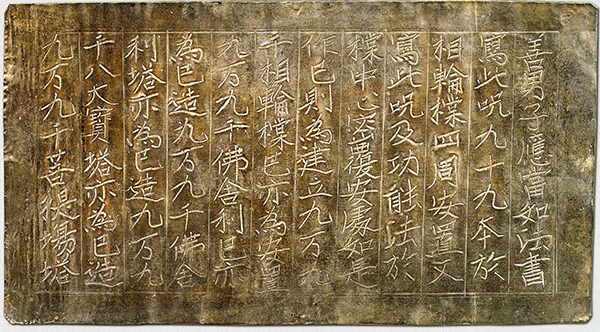 善男子應當如法書
寫此呪九十九本於
相輪樘四周安置又
寫此呪及功能法於
樘中心密覆安處如是
作已則為建立九万九
千相輪樘已亦為安置
九万九千佛舍利已亦
為已造九万九千佛舍
利塔亦為已造九万九
千八大寶塔亦為已造
九万九千菩提場塔